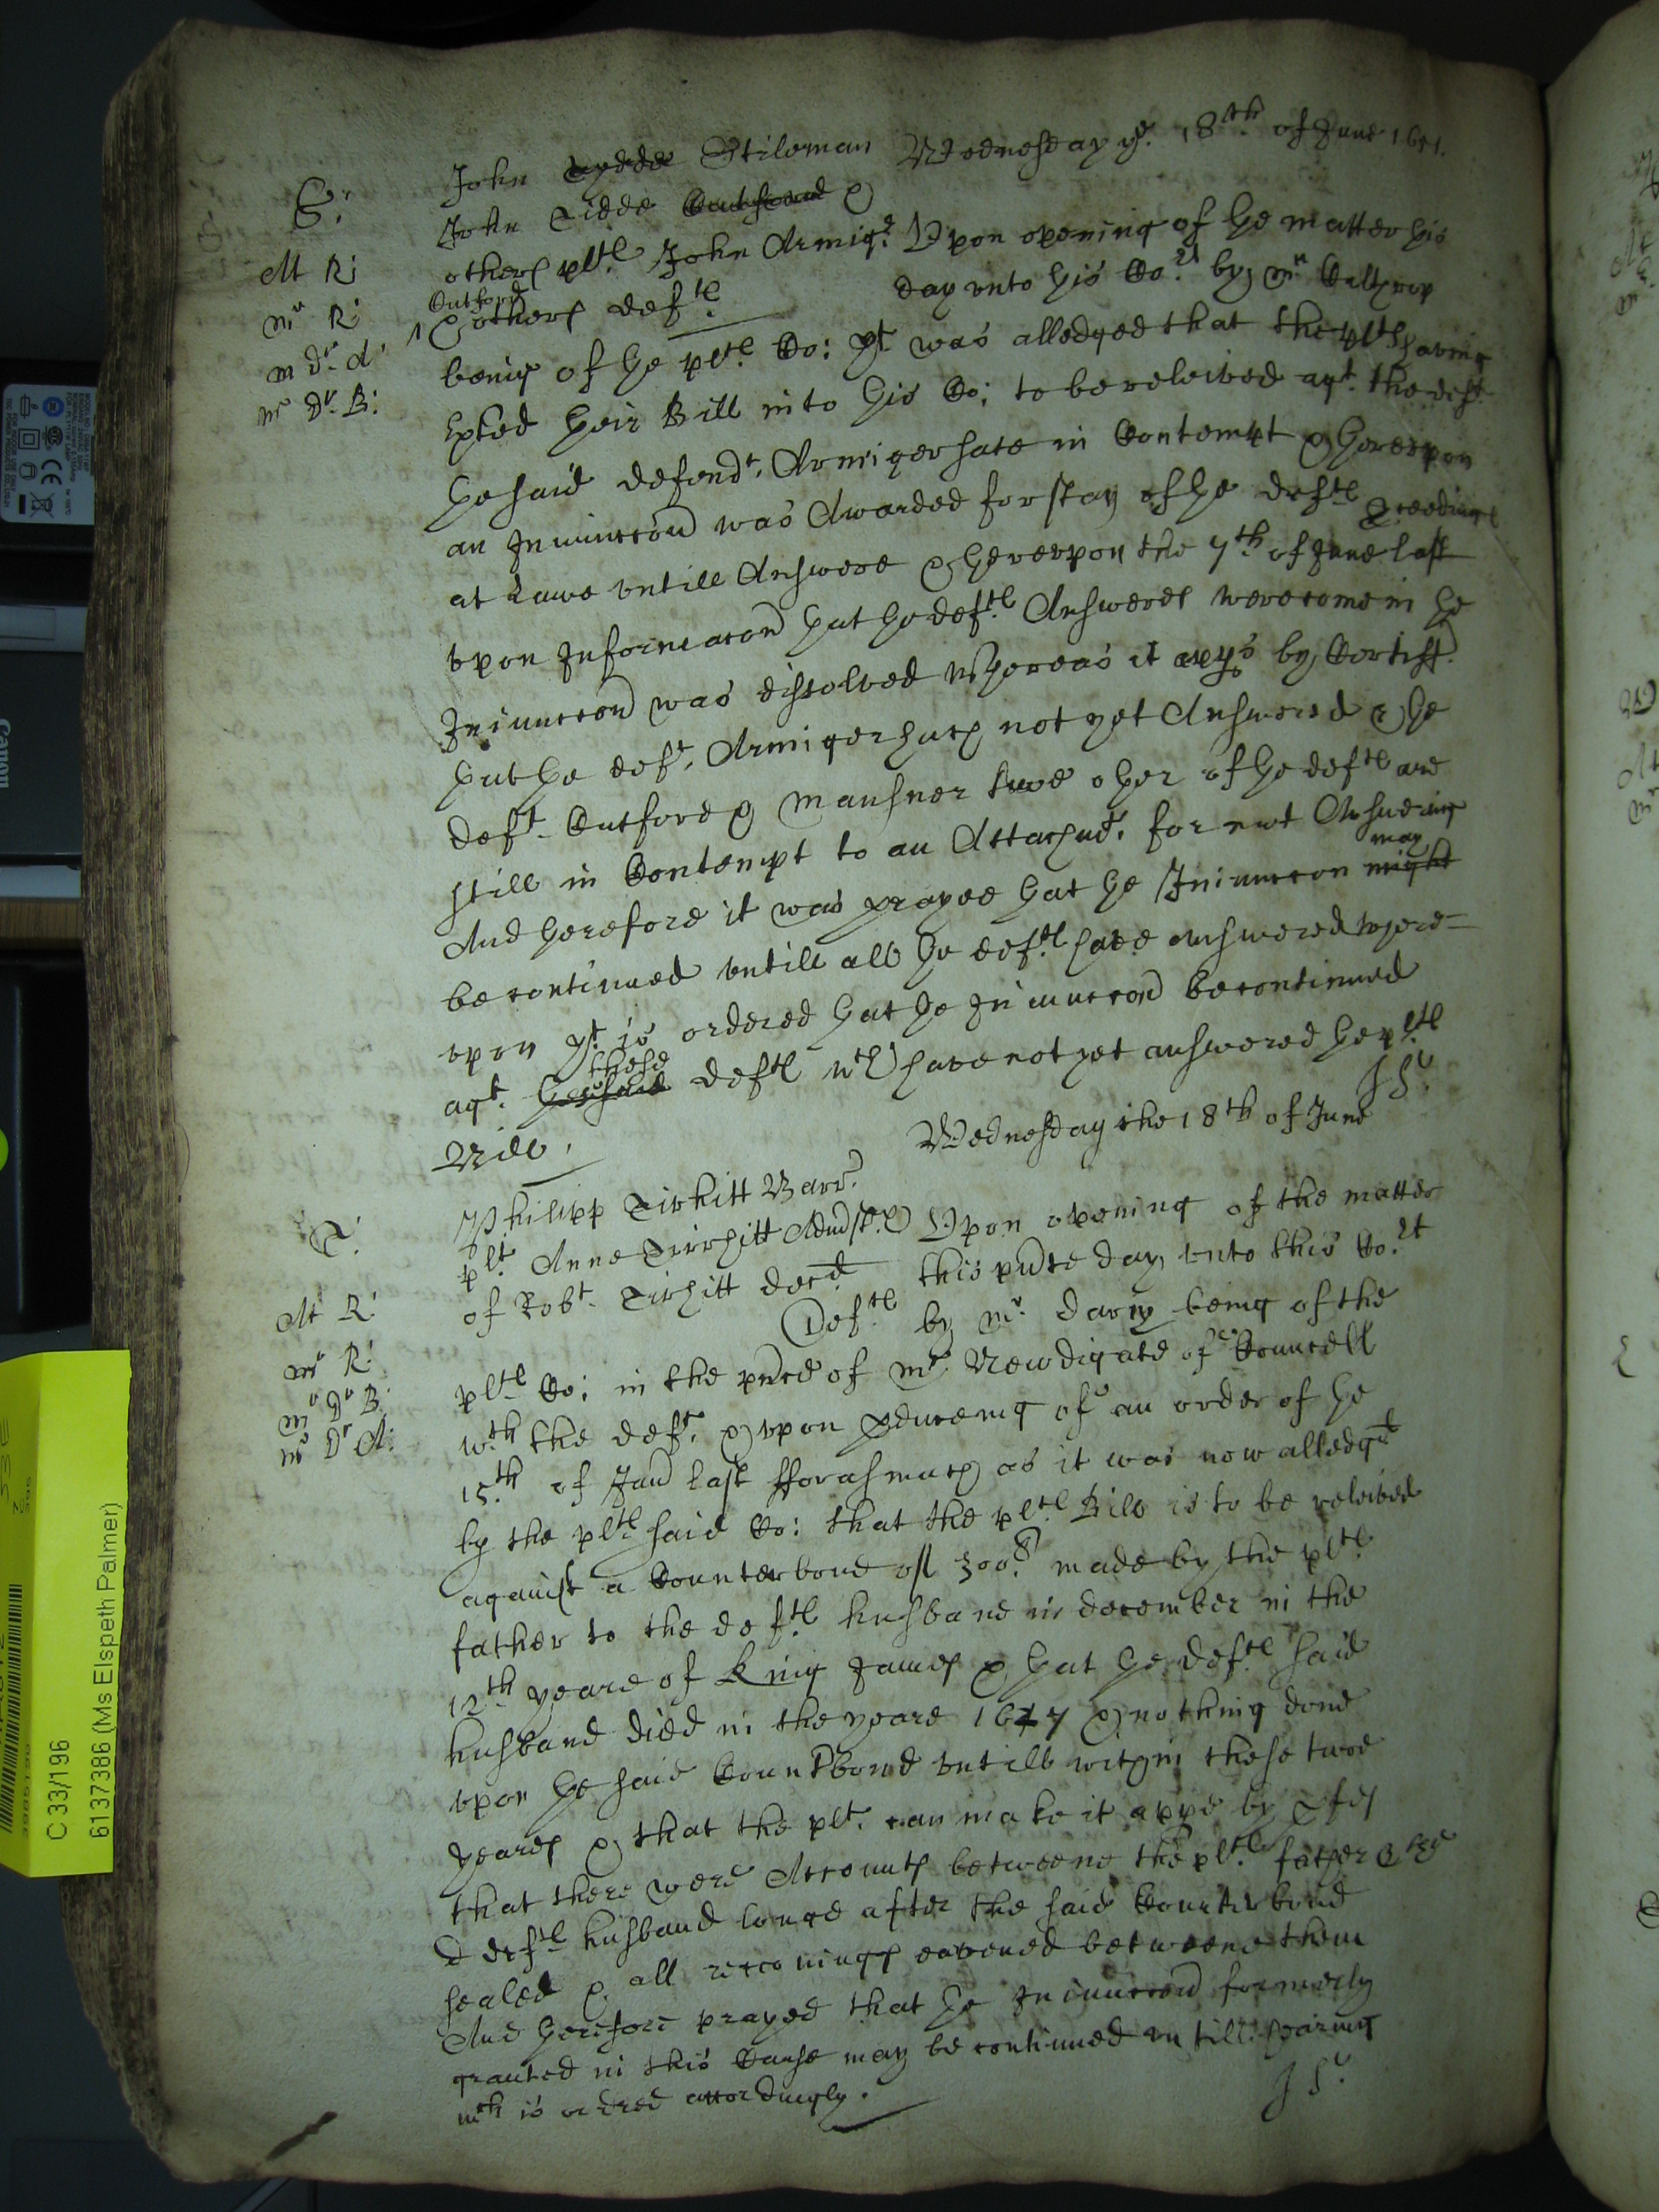 John Stileman Wednesday ye. 18th of June 1651.
S:
John Tidde &
others plts John Armigr Upon opening of the matter this
Mr R:
Cutford
& others defts day unto this Cort by mr Calthrop
Mr R:
Mr Dr A:
being of the plts Co: yt was alledged that the plts having
Mr Dr B:
their Bill into this Co: to be releived agt. the defts
the said defendt. Armiger sate in Contempt & thereupon
an Iniunccon was Awarded for stay of the defts
at Lawe untill Answere & thereupon the 7th of June last
upon Informacon that the defts Answeres were come in the
Iniunccon was dissolved Whereas it by Certiff
that the deft. Armiger hath not yet Answered & the
deft Cutford & Manfner two other of the defts are
still in Contempt to an Attachmt. for not Answering
may
And therefore it was prayed that the Iniunccon might
be continued untill all the defts have answered where-
upon yt is ordered that the Iniunccon be continued
these
agt. the said defts wch have not yet answered the plts
Bill. JS
Wednesday the 18th of June
Philipp Tirhitt Barr.
T:
plt Anne Tirrhitt Admstr & Upon opening of the matter
of Robt. Tirhitt decd this pnte day unto this Cort
Mr R:
Defts by mr. Davy being of the
Mr R:
plts Co: in the pnce of mr. Newdigate of Councell
Mr Dr B:
wth the deft. & upon pduceing of an order of the
Mr Dr A:
15th of Jan last fforasmuch as it was now alledgd
by the plts said Co: that the plts Bill is to be releived
against a Counterbond of 300l made by the plts
father to the defts husband in december in the
12th yeare of King James & that the defts said
husband died in the yeare 1627 & nothing done
upon the said Countrbond untill within these two
yeares & that the plt. can make it appe by
that there were Accounts betweene the plts father &
defts husband longe after the said Counterbond
sealed & all reconings eavened betweene them
And therefore prayed that the Iniunccon formerly
granted in this Cause may be continued untill hearing
wch is ordred accordingly. JS
C 33/196
6137386 (Ms Elspeth Palmer)
Canon